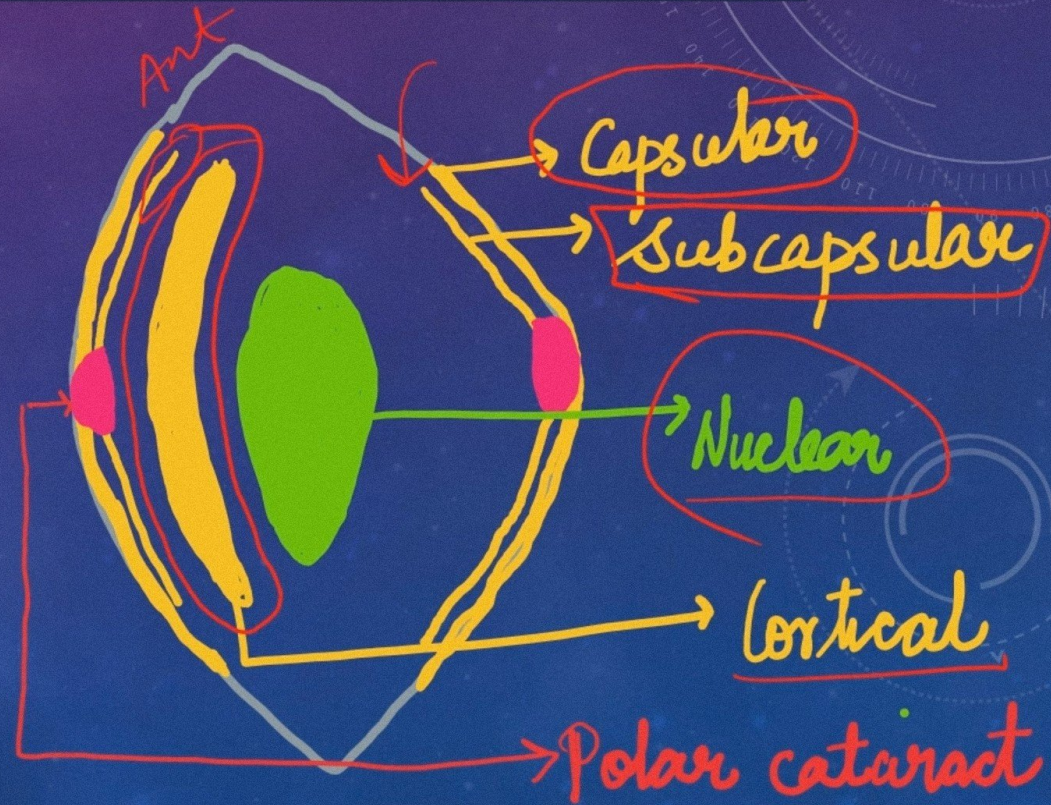 Ant
Capsular
Subcapsular
Nuclear
Cortical
Polar cataract